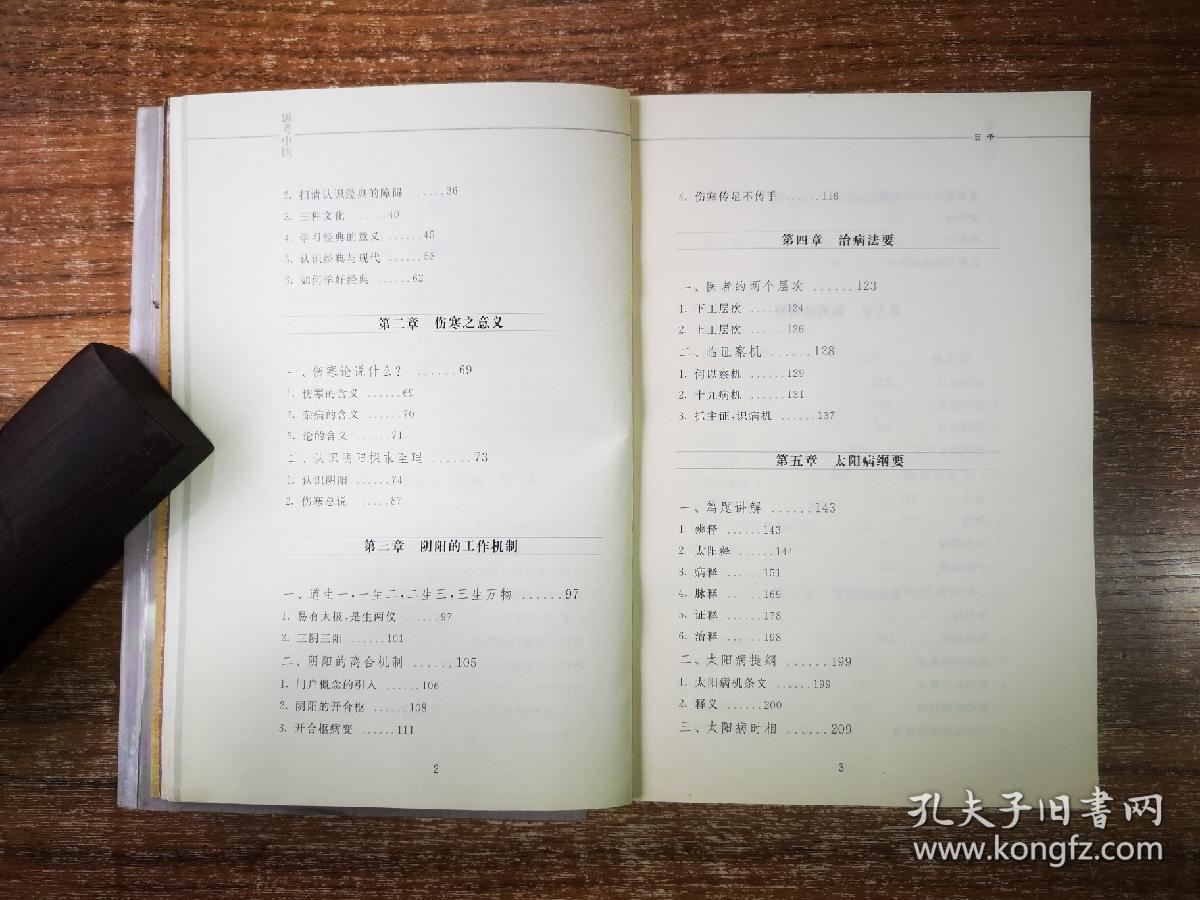 思考中医
2. 扫清认识经典的障碍 ......36
3. 三种文化 ......40
4. 学习经典的意义 ......45
5. 认识经典与现代 ......53
6. 如何学好经典 ......62
第二章 伤寒之意义
一、伤寒论说什么? ......69
1. 伤寒的含义 ......69
2. 杂病的含义 ......70
3. 论的含义 ......71
二、认识阴阳探求至理 ......73
1. 认识阴阳 ......74
2. 伤寒总说 ......87
第三章 阴阳的工作机制
一、道生一,一生二,二生三,三生万物 ......97
1. 易有太极,是生两仪 ......97
2. 三阴三阳 ......101
二、阴阳的离合机制 ......105
1. 门户概念的引入 ......106
2. 阴阳的开合枢 ......108
3. 开合枢病变 ......111
2
目录
4. 伤寒传足不传手 ......116
第四章 治病法要
一、医者的两个层次 ......123
1. 下工层次 ......124
2. 上工层次 ......126
二、临证察机 ......128
1. 何以察机 ......129
2. 十九病机 ......131
3. 抓主证,识病机 ......137
第五章 太阳病纲要
一、篇题讲解 ......143
1. 辨释 ......143
2. 太阳释 ......144
3. 病释 ......151
4. 脉释 ......169
5. 证释 ......178
6. 治释 ......198
二、太阳病提纲 ......199
1. 太阳病机条文 ......199
2. 释义 ......200
三、太阳病时相 ......209
3
孔夫子旧书网
www.kongfz.com